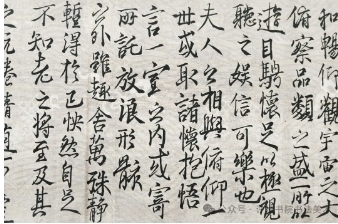 和暢仰觀宇宙之大
俯察品類之盛所以
遊目騁懷足以極視
聽之娛信可樂也
夫人之相與俯仰一
世或取諸懷抱悟
言一室之內或寄
所託放浪形骸
之外雖趣舍萬殊靜
暫得於己快然自足
不知老之將至及其
公众号
书院书法美